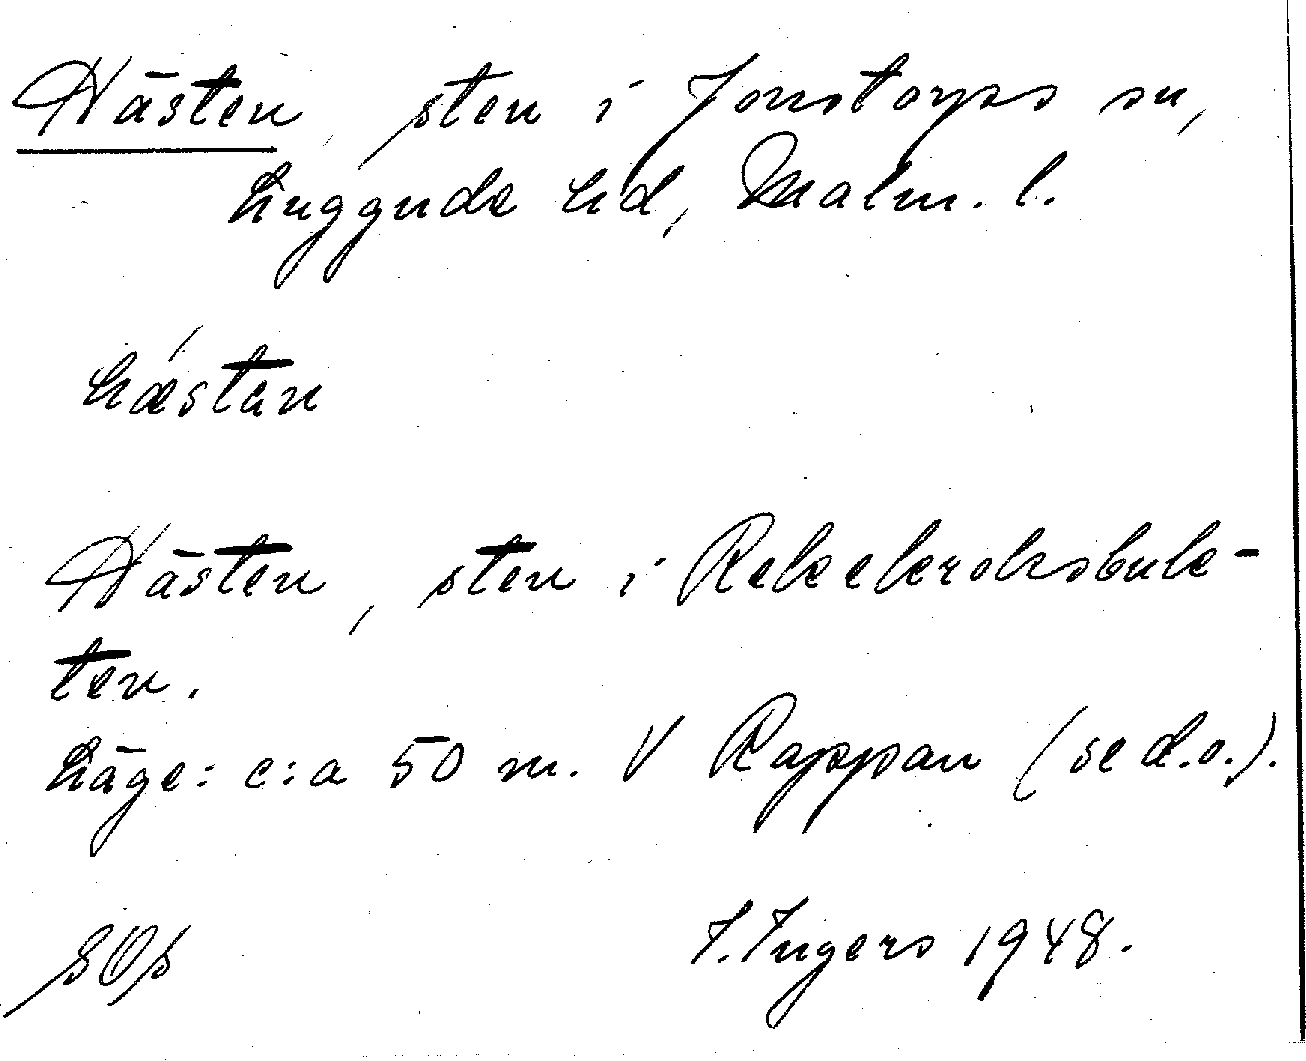 Hästen, sten i Jonstorps sn,
Luggude hd, Malm. l.
hästan
Hästen, sten i Rekekroksbuk-
ten.
Läge: c:a 50 m. V Rappan (se d.o.).
I. Ingers 1948.